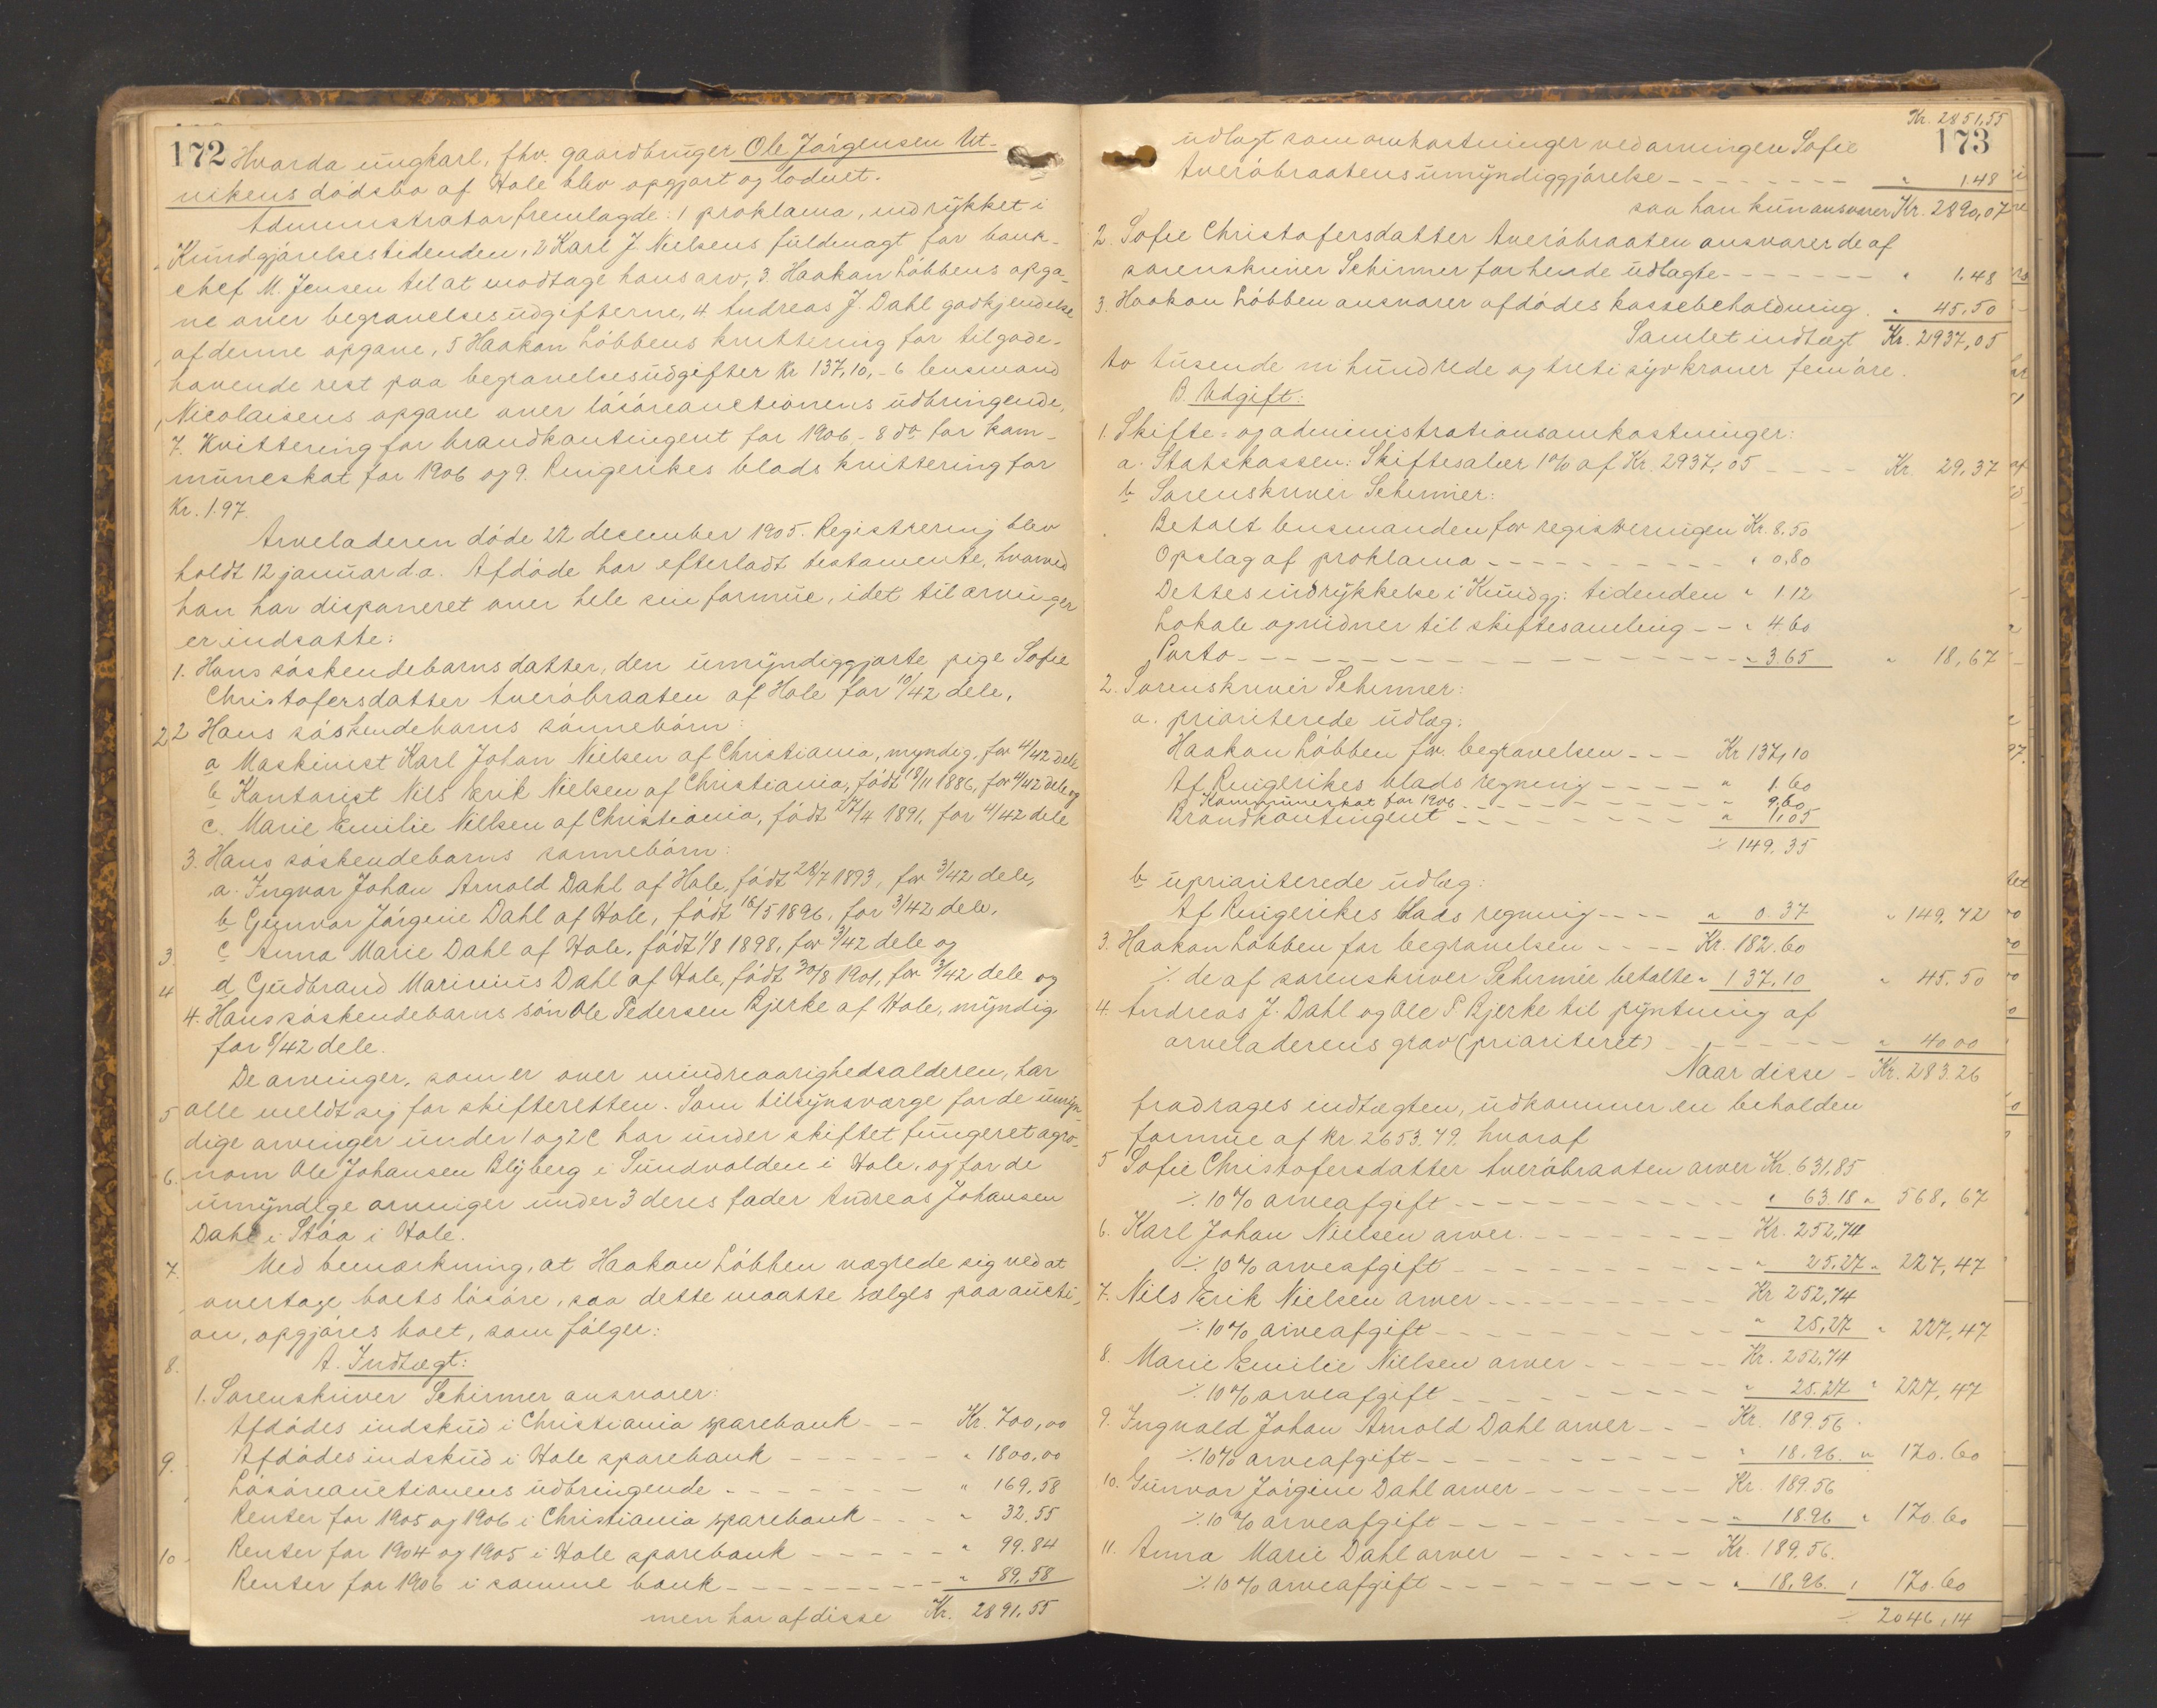 172 Hvorda ungkarl, fhv. gaardbruger Ole Jörgensen Ut-
vikens dödsbo af Hole blev opgjort og loduet.
Administrator fremlagde: 1 proklama, indrykket i
Kundgjörelsestidenden, 2 Karl J. Nielsens fuldmagt for bank-
chef M. Jensen til at modtage hans arv, 3 Haakon Löbbens opga-
ve over begravelsesudgifterne, 4 Andreas J. Dahl godkjendelse
af denne opgave, 5 Haakon Löbbens kvittering for tilgode-
havende rest paa begravelsesudgifter Kr 137,10, - 6 lensmand
Nicolaisens opgave over lösöreauctionens udbringende,
7. Kvittering for brandkontingent for 1906, - 8 do for kom-
muneskat for 1906 og 9. Ringerikes blads kvittering for
Kr. 1.97.
Arveladeren döde 22 december 1905. Registrering blev
holdt 12 januar d.a. Afdöde har efterladt testamente, hvorved
han har disponeret over hele sin formue, idet til arvinger
er indsatte:
1. Hans söskendebarns datter, den umyndiggjorte pige Sofie
Christofersdatter Averöbraaten af Hole for 10/42 dele,
2 2 Hans söskendebarns sönnebörn:
a Maskinist Karl Johan Nielsen af Christiania, myndig, for 4/42 dele
b Kontorist Nils Erik Nielsen af Christiania, födt 18/11 1886, for 4/42 dele og
c. Marie Emilie Nielsen af Christiania, födt 27/4 1891, for 4/42 dele
3. Hans söskendebarns sonnebörn:
a. Ingvar Johan Arnold Dahl af Hole, födt 28/7 1893, for 3/42 dele,
b Gunvor Jörgine Dahl af Hole, födt 16/5 1896, for 3/42 dele,
3. c Anna Marie Dahl af Hole, födt 1/8 1898, for 3/42 dele og
4 d Gudbrand Marinius Dahl af Hole, födt 30/8 1901, for 3/42 dele og
4. Hans söskendebarns sön Ole Pedersen Bjerke af Hole, myndig
for 8/42 dele.
De arvinger, som er over mindreaarighedsalderen, har
5 alle meldt sig for skifteretten. Som tilsynsværge for de umyn-
dige arvinger under 1 og 2 c har under skiftet fungeret agro-
6. nom Ole Johansen Blyberg i Sundvolden i Hole, og for de
umyndige arvinger under 3 deres fader Andreas Johansen
Dahl i Stöa i Hole.
7. Med bemærkning, at Haakon Löbben vægrede sig ved at
overtage boets lösöre, saa dette maatte sælges paa aucti-
on, opgjöres boet, som fölger:
8. A. Indtægt:
1. Sorenskriver Schirmer ansvarer:
Afdödes indskud i Christiania sparebank - - - Kr. 700,00
9. Afdödes indskud i Hole sparebank - - - - - - " 1800,00
Lösöreauctionens udbringende - - - - - - - " 169,58
Renter for 1905 og 1906 i Christiania sparebank - - - " 32.55
10. Renter for 1904 og 1905 i Hole sparebank - - - - - " 99.84
Renter for 1906 i samme bank - - - - - - - - - " 89,58
men har af disse Kr. 2891.55
Kr. 2851,55
173
udlagt som omkostninger ved arvingen Sofie
Averöbraatens umyndiggjörelse - - - - - - - - " 1.48
saa han kun ansvarer Kr. 2890,07
2. Sofie Christofersdatter Averöbraaten ansvarer de af
sorenskriver Schirmer for hende udlagte - - - - - - - " 1,48
3. Haakon Löbben ansvarer afdödes kassebeholdning. " 45,50
Samlet indtægt Kr. 2937,05
to tusende ni hundrede og treti syv kroner fem öre.
B. Udgift:
1. Skifte- og administrationsomkostninger:
a. Statskassen: Skiftesalær 1% af Kr. 2937,05 - - - - Kr. 29,37
b Sorenskriver Schirmer:
Betalt lensmanden for registreringen Kr. 8,50
Opslag af proklama - - - - - - - - - - " 0,80
Dettes indrykkelse i Kundgj: tidenden " 1.12
Lokale og vidner til skiftesamling - - " 4.60
Porto - - - - - - - - - - - - - - - - " 3.65 " 18,67
2. Sorenskriver Schirmer:
a. prioriterede udlæg:
Haakon Löbben for begravelsen - - - Kr 137,10
Af Ringerikes blads regning - - - - - " 1.60
Kommuneskat for 1906 - - - - - - - - " 9,60
Brandkontingent - - - - - - - - " 1,05
⁒ 149.35
b uprioriterede udlæg:
Af Ringerikes blads regning - - - - " 0.37 " 149,72
3. Haakon Löbben for begravelsen - - - - Kr. 182.60
⁒ de af sorenskriver Schirmer betalte " 137,10 " 45.50
4. Andreas J. Dahl og Ole P Bjerke til pyntning af
arveladerens grav (prioriteret) - - - - - - - - " 40 00
Naar disse - Kr. 283.26
fradrages indtægten, udkommer en beholden
formue af kr. 2653.79. hvoraf
5 Sofie Christofersdatter Averöbraaten arver Kr. 631,85
⁒ 10% arveafgift - - - - - - - - - - - " 63.18 " 568,67
6. Karl Johan Nielsen arver. - - - - - - - - Kr. 252,74
⁒ 10% arveafgift - - - - - - - - - - - " 25,27 " 227,47
7. Nils Erik Nielsen arver - - - - - - - - - Kr 252,74
⁒ 10% arveafgift - - - - - - - - - - - " 25,27 " 227,47
8. Marie Emilie Nielsen arver - - - - - - Kr. 252,74
⁒ 10% arveafgift - - - - - - - - - - " 25.27 " 227,47
9. Ingvald Johan Arnold Dahl arver - - - Kr. 189.56.
⁒ 10% arveafgift - - - - - - - - - - " 18.96. " 170.60
10. Gunvor Jörgine Dahl arver - - - - - - - Kr. 189.56
⁒ 10% arveafgift - - - - - - - - - - " 18.96 " 170.60
11. Anna Marie Dahl arver - - - - - - - Kr. 189.56.
⁒ 10% arveafgift - - - - - - - - - - " 18,96. " 170.60
⁒ 2046,14